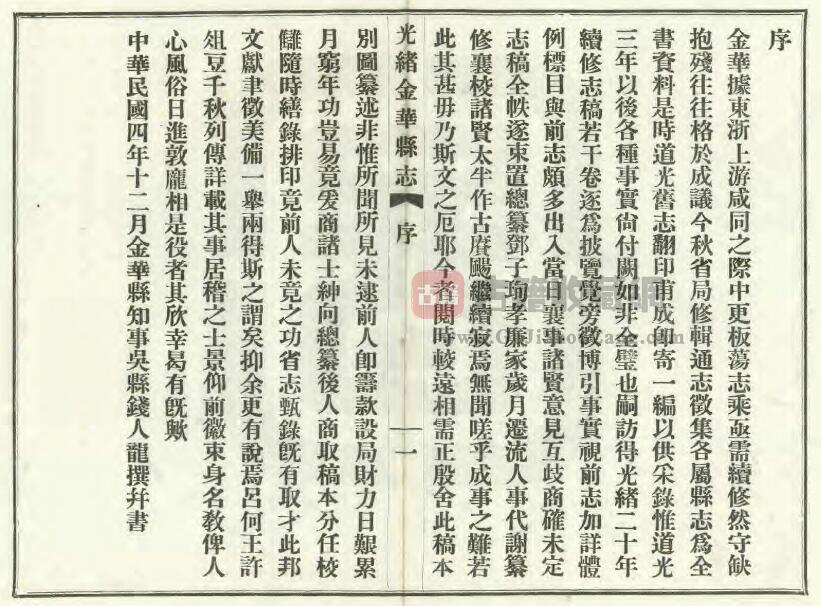 序
金華據東浙上游咸同之際中更板蕩志乘亟需續修然守缺
抱殘往往格於成議今秋省局修輯通志徵集各屬縣志爲全
書資料是時道光舊志翻印甫成卽寄一編以供采錄惟道光
三年以後各種事實尙付闕如非全璧也嗣訪得光緒二十年
續修志稿若干卷逐爲披覽覺旁徵博引事實視前志加詳體
例標目與前志頗多出入當日襄事諸賢意見互歧商確未定
志稿全帙遂束置總纂鄧子珣孝廉家歲月遷流人事代謝纂
修襄校諸賢太半作古賡颺繼續寂焉無聞嗟乎成事之難若
此其甚毋乃斯文之厄耶今者閱時較遠相需正殷舍此稿本
光緒金華縣志 序 一
別圖纂述非惟所聞所見未逮前人卽籌款設局財力日艱累
月窮年功豈易竟爰商諸士紳向總纂後人商取稿本分任校
讎隨時繕錄排印竟前人未竟之功省志甄錄旣有取才此邦
文獻聿徵美備一舉兩得斯之謂矣抑余更有說焉呂何王許
俎豆千秋列傳詳載其事居稽之士景仰前徽束身名敎俾人
心風俗日進敦龐相是役者其欣幸曷有旣歟
中華民國四年十二月金華縣知事吳縣錢人龍撰幷書
古籍收藏網